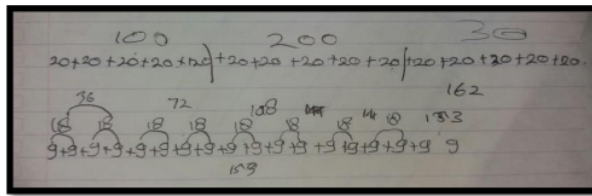 100 200 30
20+20+20+20+20+20+20+20+20+20+20+20+20+20+20.
162
36 72 108
18 18 18 18 18 18 18 18 153
9+9+9+9+9+9+9+9+9+9+9+9+9+9+9+9 9
159